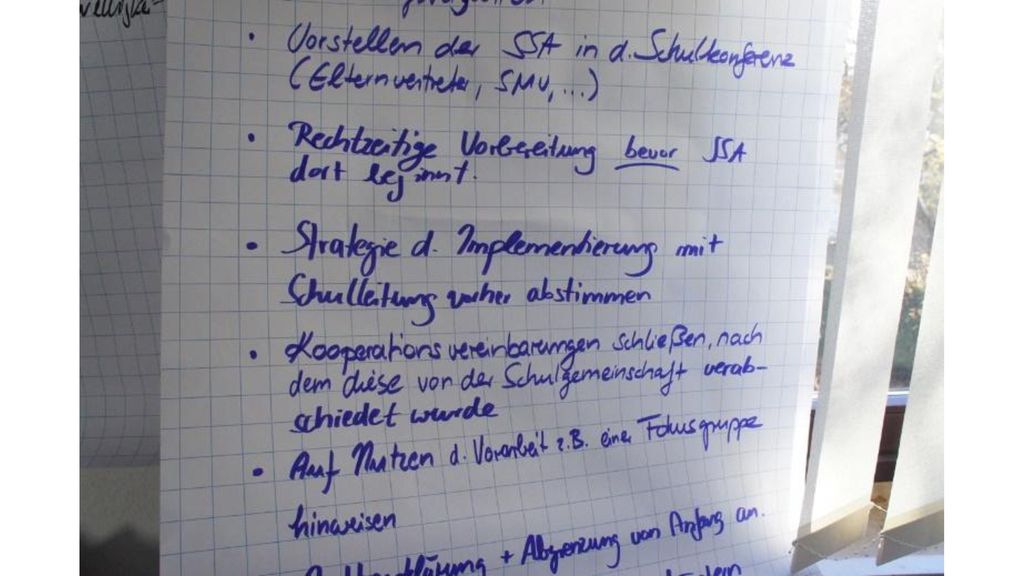 • Vorstellen der SSA in d. Schulkonferenz
(Elternvertreter, SMV, ...)
• Rechtzeitige Vorbereitung bevor SSA
dort beginnt.
• Strategie d. Implementierung mit
Schulleitung vorher abstimmen
• Kooperationsvereinbarungen schließen, nach
dem diese von der Schulgemeinschaft verab-
schiedet wurde
• Auf Nutzen d. Vorarbeit z.B. einer Fokusgruppe
hinweisen
+ Abgrenzung von Anfang an.